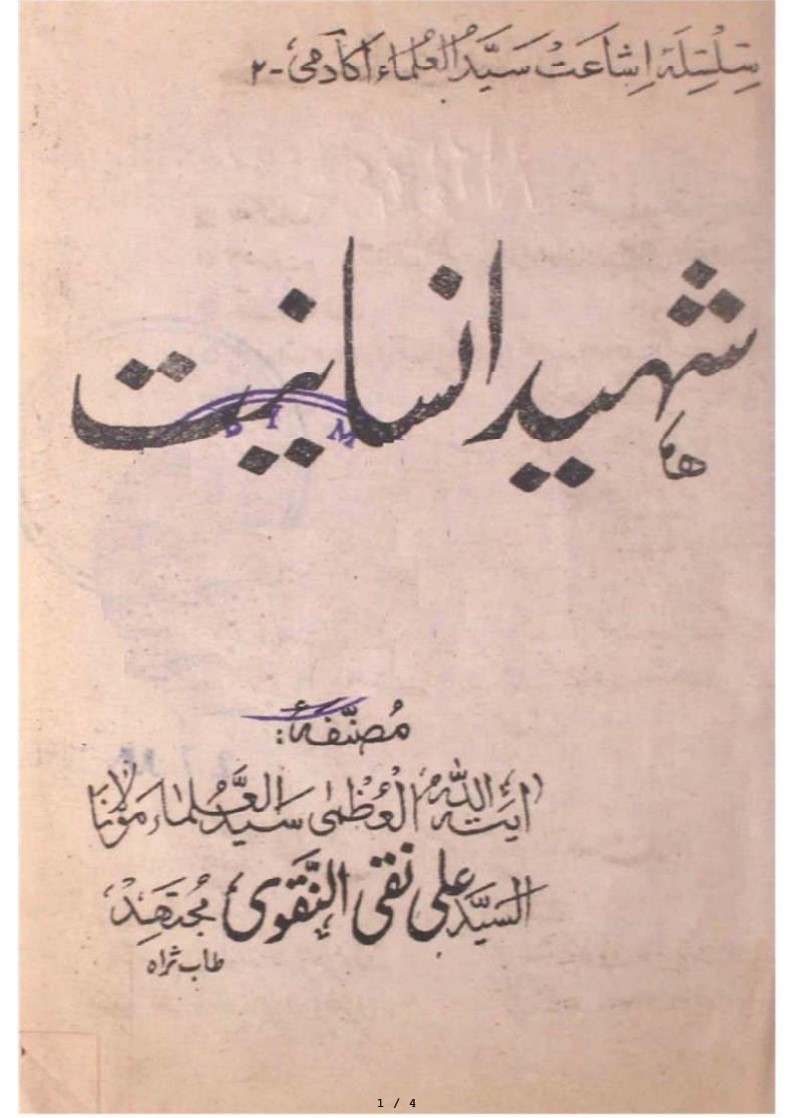 سِلْسِلَۂ اِشَاعَتْ سَیَّدُ العُلَماء اکادمی -۲
شہید انسانیت
D I M
مُصنَّفہٗ:
آیَتہ اللّٰہُ الْعُظْمٰی سَیدُ العُلَماء مَوْلانَا
السیَّد علی نقی النَّقوی مُجتَھِدْ
طاب ثراہ
1 / 4